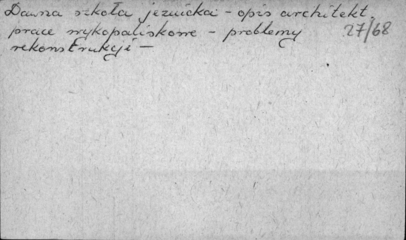 Dawna szkoła jezuicka - opis architekt,
prace wykopaliskowe - problemy 27/68
rekonstrukcji -